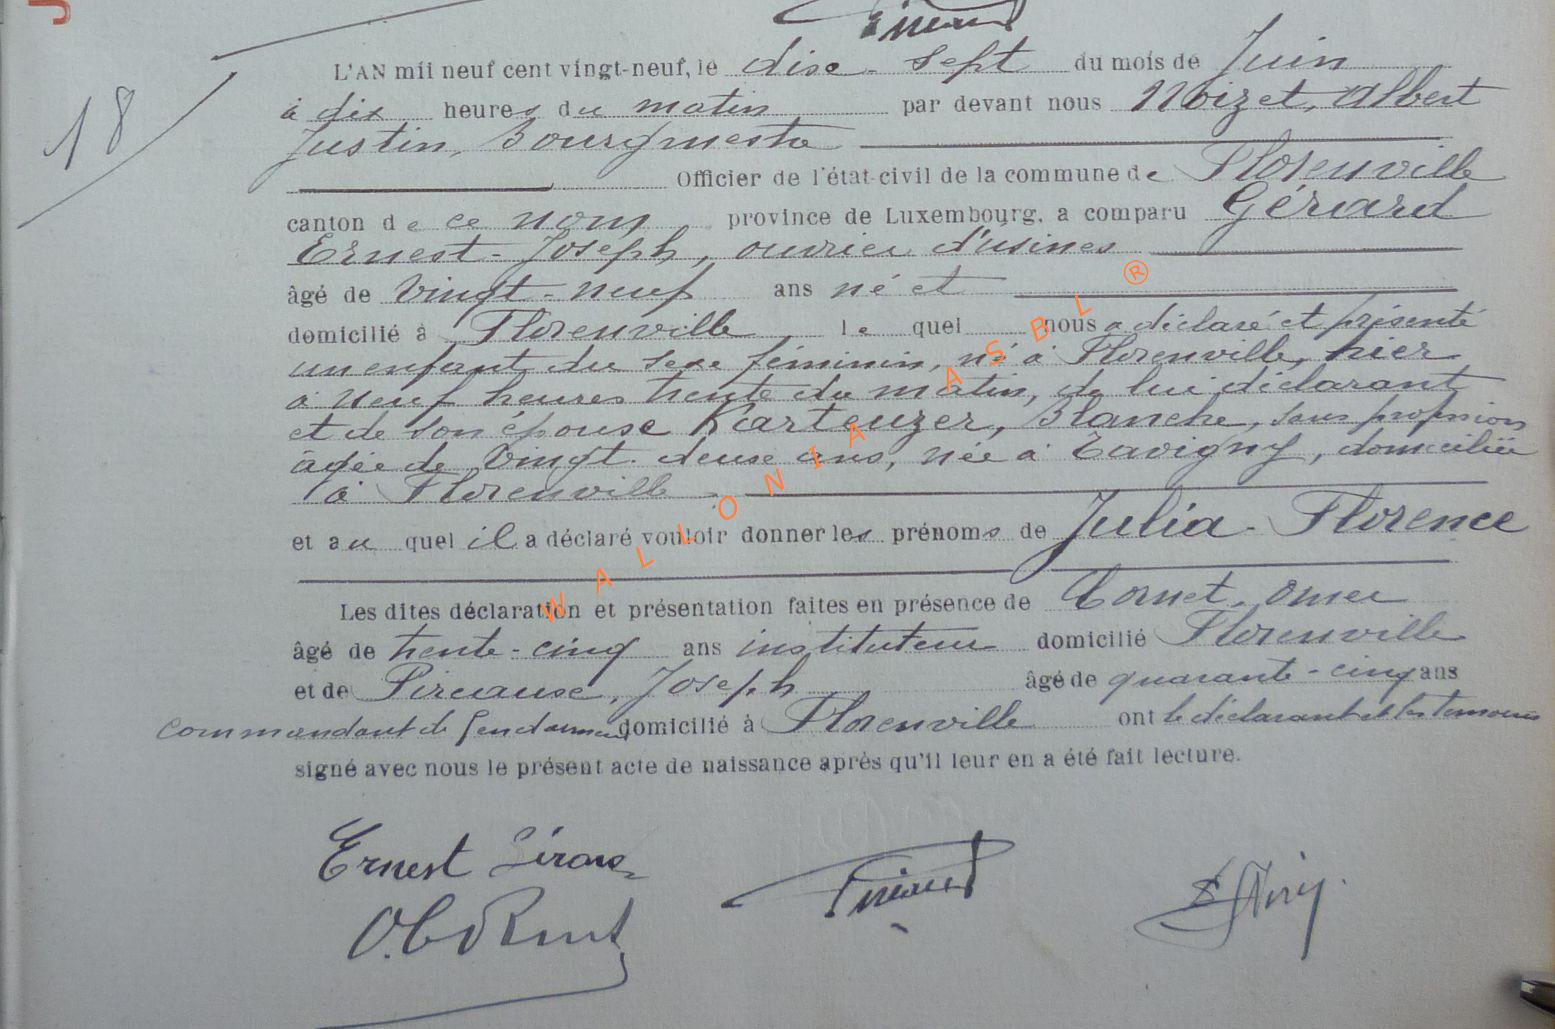 18
L'AN mil neuf cent vingt-neuf, le dixe-sept du mois de Juin
à dix heures du matin par devant nous Noizet, Albert
Justin, Bourgmestre
Officier de l'état-civil de la commune de Florenville
canton de ce nom province de Luxembourg, a comparu Gérard
Ernest-Joseph, ouvrier d'usines
âgé de Vingt-neuf ans né et
domicilié à Florenville lequel nous a déclaré et présenté
un enfant du sexe féminin, né à Florenville, hier
à neuf heures trente du matin, de lui déclarant
et de son épouse Karteuzer, Blanche, sans profession
âgée de Vingt-deux ans, née à Tavigny, domiciliée
à Florenville
et auquel il a déclaré vouloir donner les prénoms de Julia-Florence
Les dites déclaration et présentation faites en présence de Cornet, Omer
âgé de trente-cinq ans instituteur domicilié Florenville
et de Joseph âgé de quarante-cinq ans
commandant de Gendarmerie domicilié à Florenville ont le déclarant et les témoins
signé avec nous le présent acte de naissance après qu'il leur en a été fait lecture.
Ernest Gérard
O. Cornet
WALLONIA ASBL ®